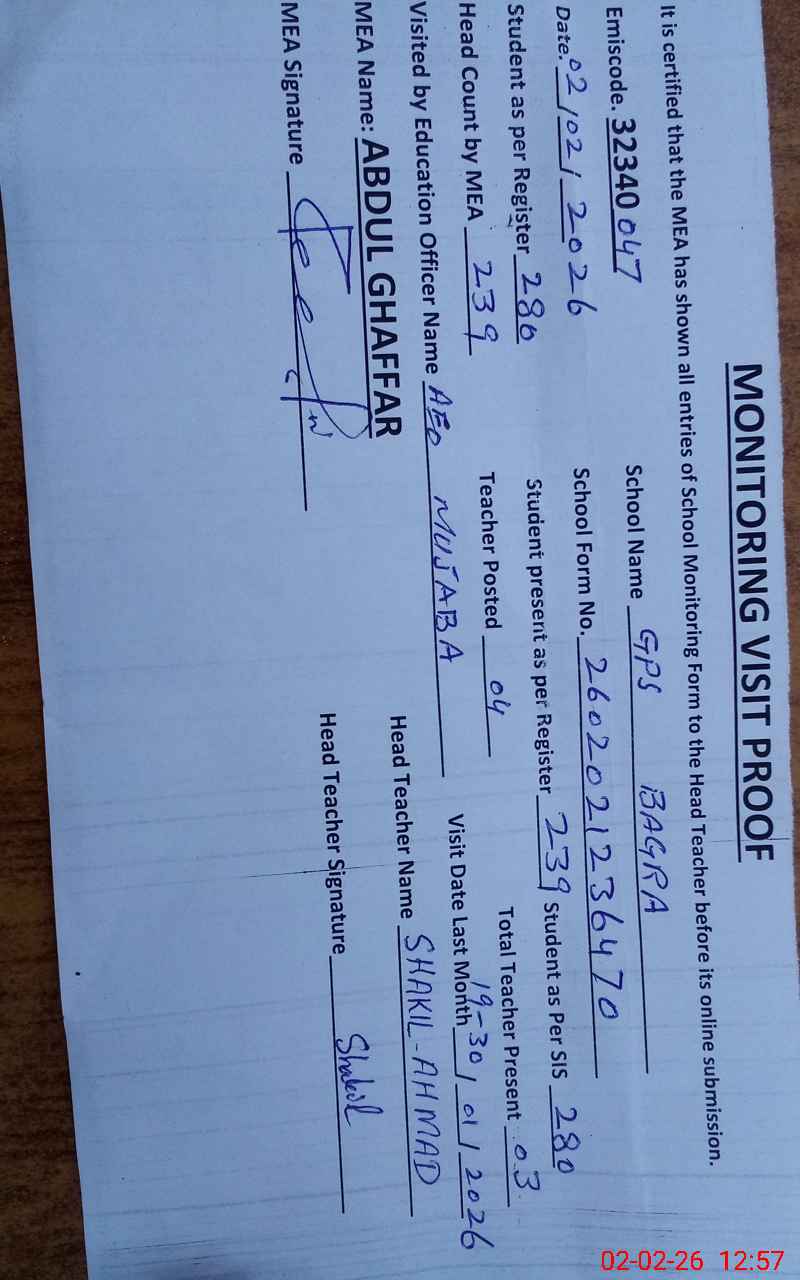 MONITORING VISIT PROOF
It is certified that the MEA has shown all entries of School Monitoring Form to the Head Teacher before its online submission.
Emiscode. 32340 047 School Name GPS BAGRA
Date. 02/02/2026 School Form No. 2602021236470
Student as per Register 280 Student present as per Register 239 Student as Per SIS 280
Head Count by MEA 239 Teacher Posted 04 Total Teacher Present 03
Visited by Education Officer Name AEO MUJABA Visit Date Last Month 19-30/01/2026
MEA Name: ABDUL GHAFFAR Head Teacher Name SHAKIL-AHMAD
MEA Signature Head Teacher Signature Shakil
02-02-26 12:57